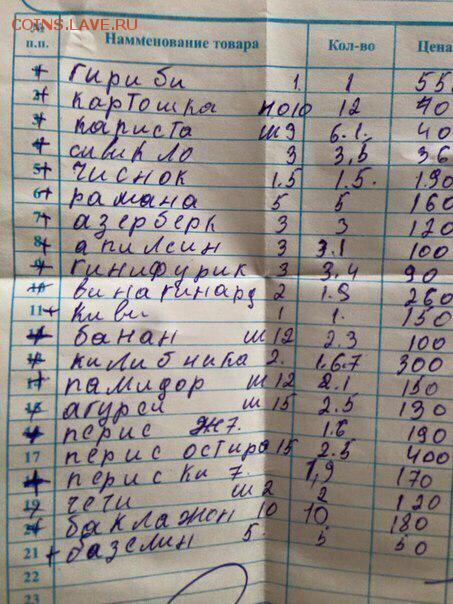 COINS.LAVE.RU
№ п.п. Наименование товара Кол-во Цена
1 гириби 1. 1 55
2 картошка 1010 12 40
3 кариста ш9 6.1. 40
4 сивикло 3 3,5 36
5 чиснок 1.5 1.5. 190
6 рамана 5 5 160
7 азерберк 3 3 120
8 апилсин 3 3.1 100
9 гинифурик 3 3,4 90
10 винагинард 2 1.9 260
11 киви 1 1. 150
банан ш 12 2.3 100
килибника 2. 1.6.7 300
памидор ш 12 2.1 150
агурси ш 15 2.5 130
перис ж7. 1.6 190
17 перис остиро 15 2.5 400
периски 7. 1,9 170
19 чети ш 2 2 120
20 баклажон 10 10 180
21 базелин 5. 5 50
22
23